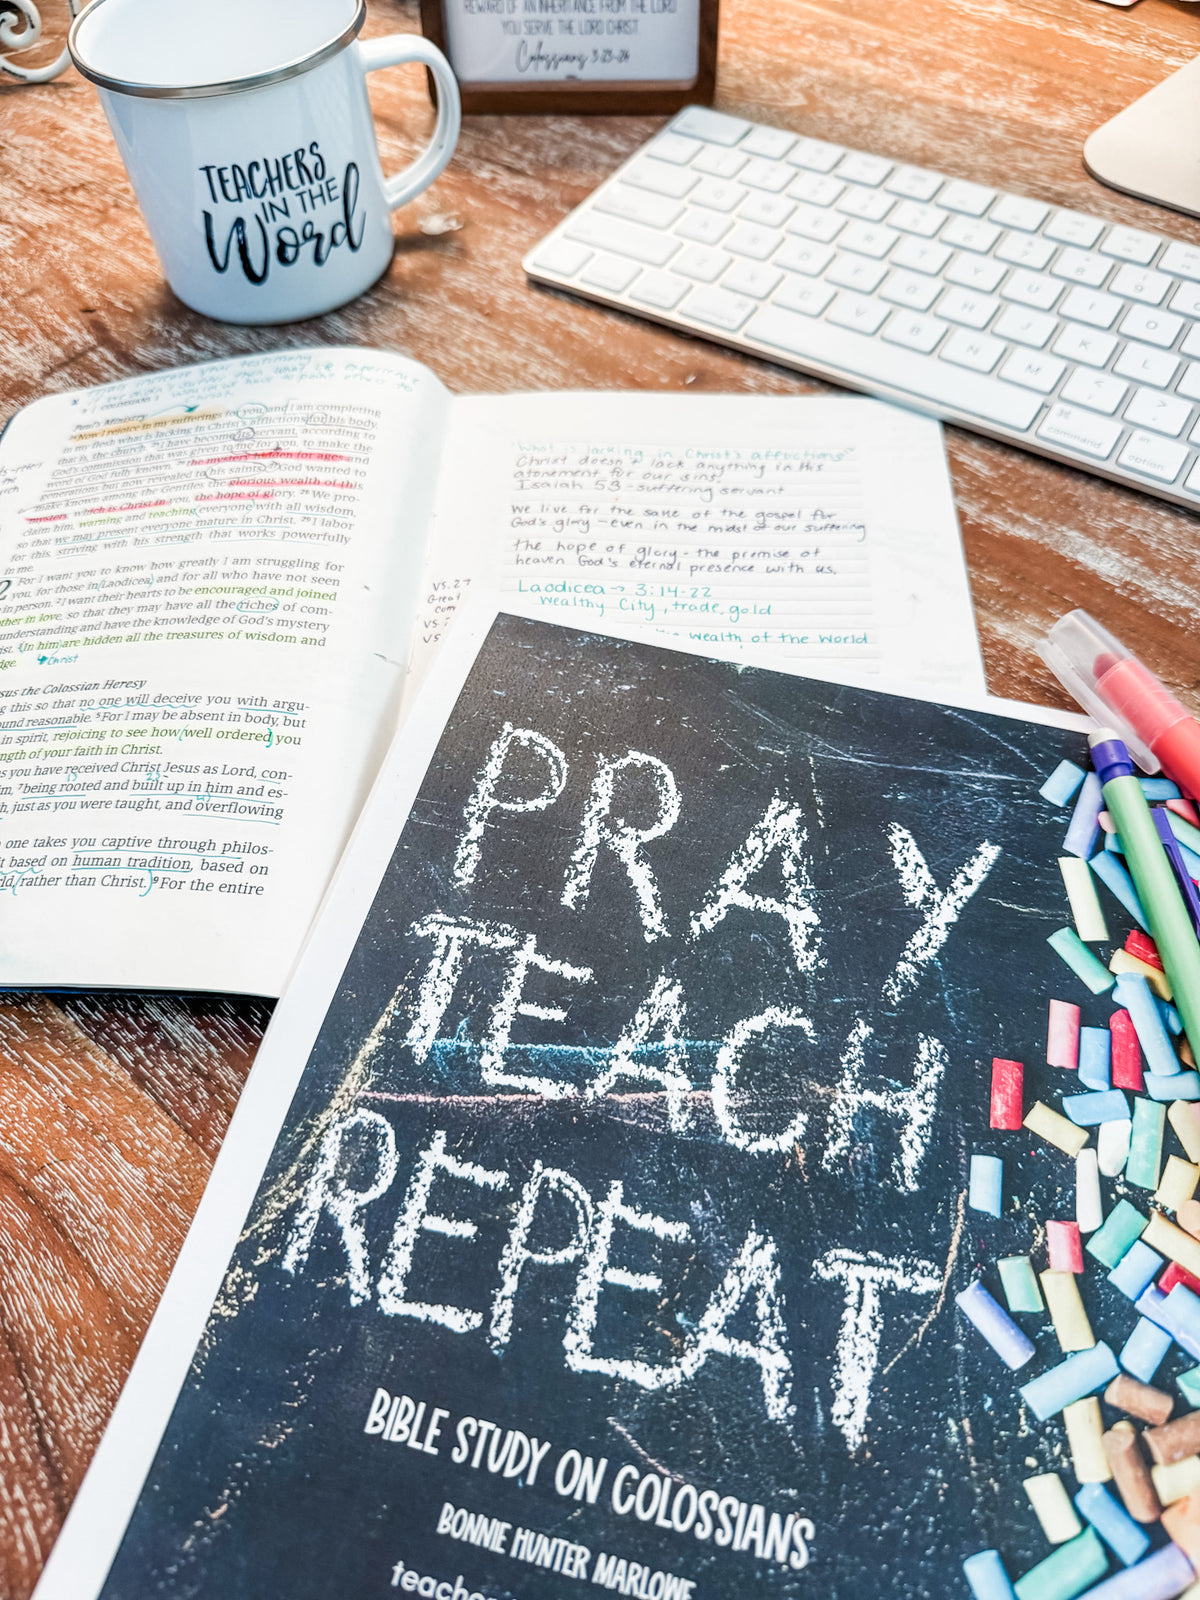 REWARD OF AN INHERITANCE FROM THE LORD
YOU SERVE THE LORD CHRIST.
Colossians 3:23-24
TEACHERS
IN THE
Word
Paul's Ministry
24 Now I rejoice in my sufferings for you, and I am completing
in my flesh what is lacking in Christ's afflictions for his body,
that is, the church. 25 I have become its servant, according to
God's commission that was given to me for you, to make the
word of God fully known, 26 the mystery hidden for ages and
generations but now revealed to his saints. 27 God wanted to
make known among the Gentiles the glorious wealth of this
mystery, which is Christ in you, the hope of glory. 28 We pro-
claim him, warning and teaching everyone with all wisdom,
so that we may present everyone mature in Christ. 29 I labor
for this, striving with his strength that works powerfully
in me.
2 For I want you to know how greatly I am struggling for
you, for those in Laodicea, and for all who have not seen
in person. 2 I want their hearts to be encouraged and joined
ther in love, so that they may have all the riches of com-
understanding and have the knowledge of God's mystery
ist. 3 In him are hidden all the treasures of wisdom and
dge.
Christ
sus the Colossian Heresy
g this so that no one will deceive you with argu-
ound reasonable. 5 For I may be absent in body, but
in spirit, rejoicing to see how well ordered you
ngth of your faith in Christ.
as you have received Christ Jesus as Lord, con-
m, 7 being rooted and built up in him and es-
h, just as you were taught, and overflowing
one takes you captive through philos-
t based on human tradition, based on
rld rather than Christ. 9 For the entire
What is lacking in Christ's afflictions
Christ doesn't lack anything in his
atonement for our sins.
Isaiah 53 - suffering servant
We live for the sake of the gospel for
God's glory - even in the midst of our suffering
the hope of glory - the promise of
heaven God's eternal presence with us.
Laodicea → 3:14-22
wealthy city, trade, gold
wealth of the world
vs. 27
Great
vs
vs
command
option
PRAY
TEACH
REPEAT
BIBLE STUDY ON COLOSSIANS
BONNIE HUNTER MARLOWE
teacher